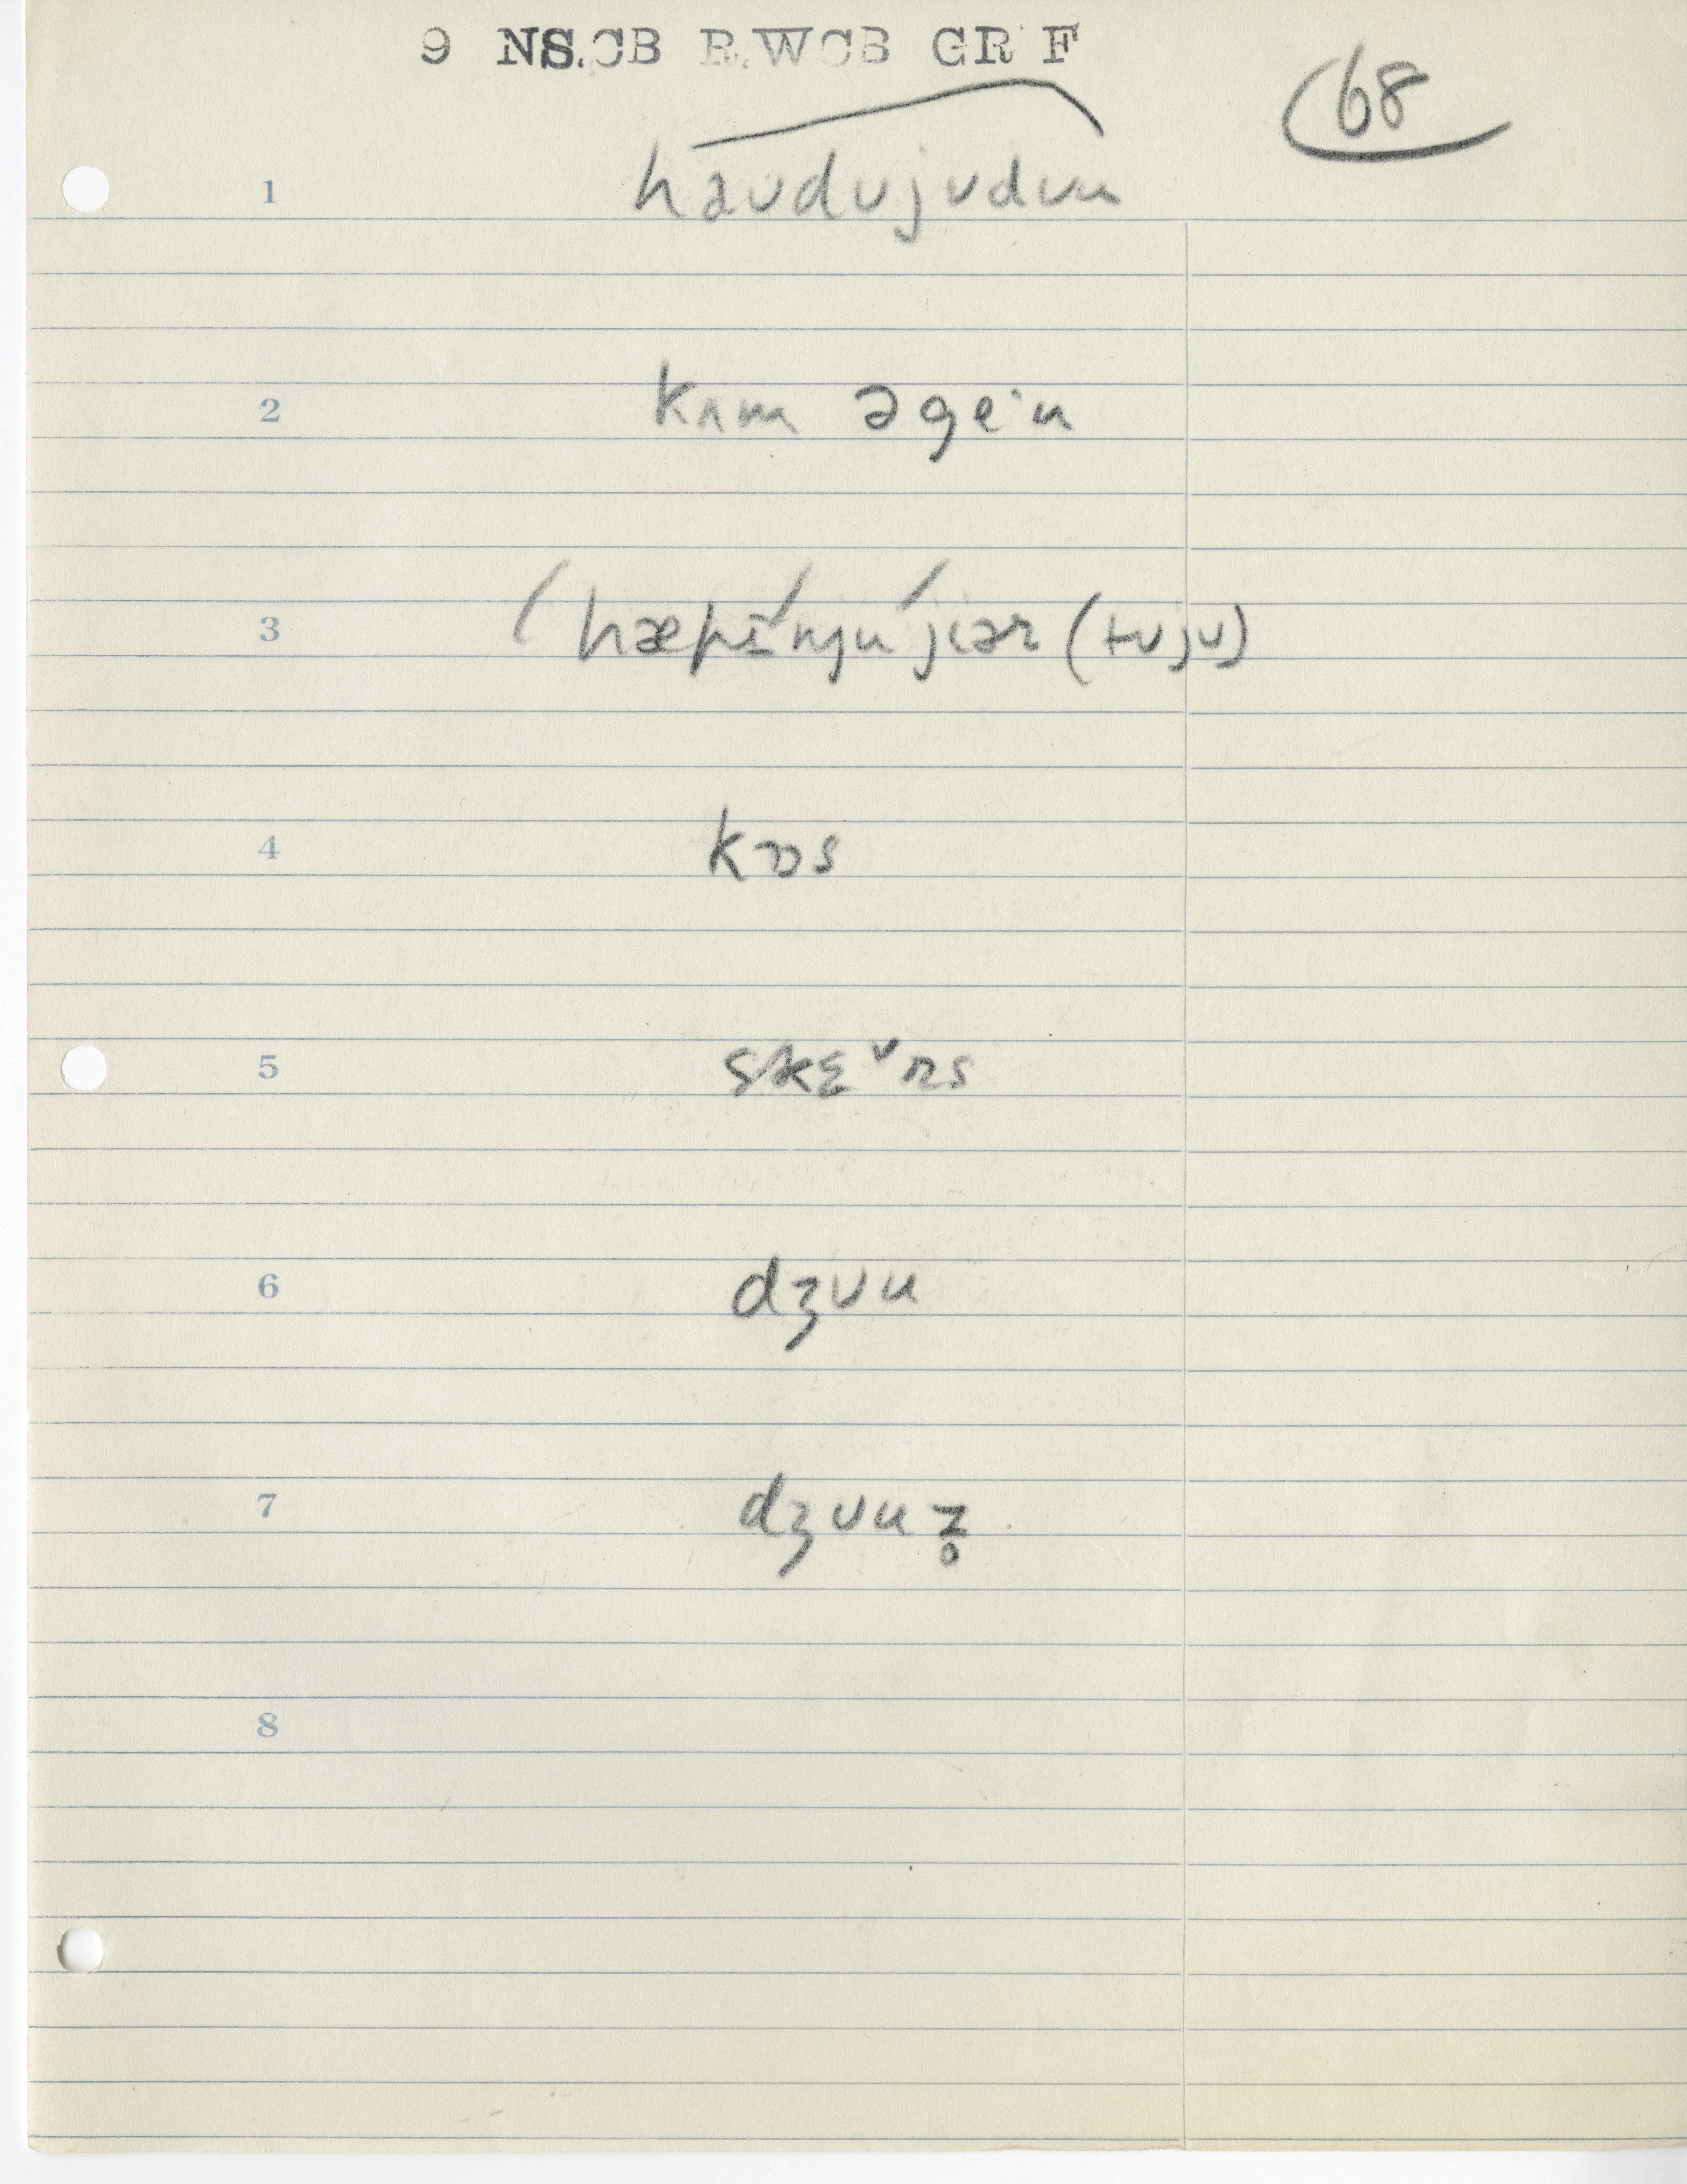 9 NS.CB R.WCB GR F
68
1 haudujuduu
2 kʌm əgeˑn
3 ( hæpɪ́njúˊjɪər (tuju)
4 kɒs
5 skɛᵛrs
6 dʒuu
7 dʒuuz̥
8